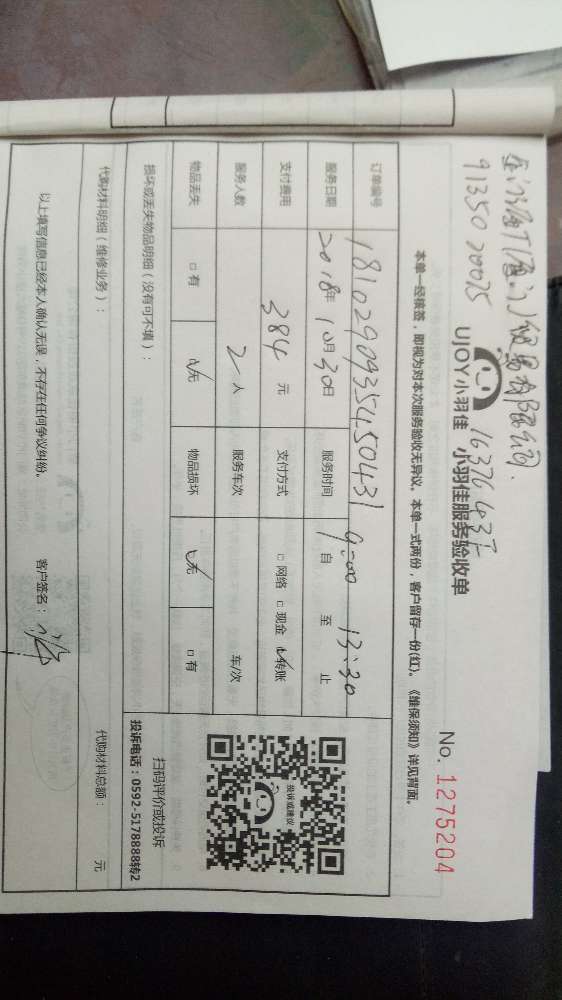 91350200
UJOY小羽佳 小羽佳服务验收单
No. 1275204
本单一经核签，即视为对本次服务验收无异议。本单一式两份，客户留存一份(红)。《维保须知》详见背面。
订单编号 1810290935450431
服务日期 2018年10月30日 服务时间 9:00 自 至 13:30 止
支付费用 384 元 支付方式 □ 网络 □ 现金 ☑ 转账
服务人数 2 人 服务车次 车/次
物品丢失 □ 有 ☑ 无 物品损坏 ☑ 无 □ 有
损坏或丢失物品明细（没有可不填）：
投诉或建议
扫码评价或投诉
投诉电话：0592-5178888转2
代购材料明细（维修业务）： 代购材料总额： 元
以上填写信息已经本人确认无误，不存在任何争议纠纷。 客户签名：